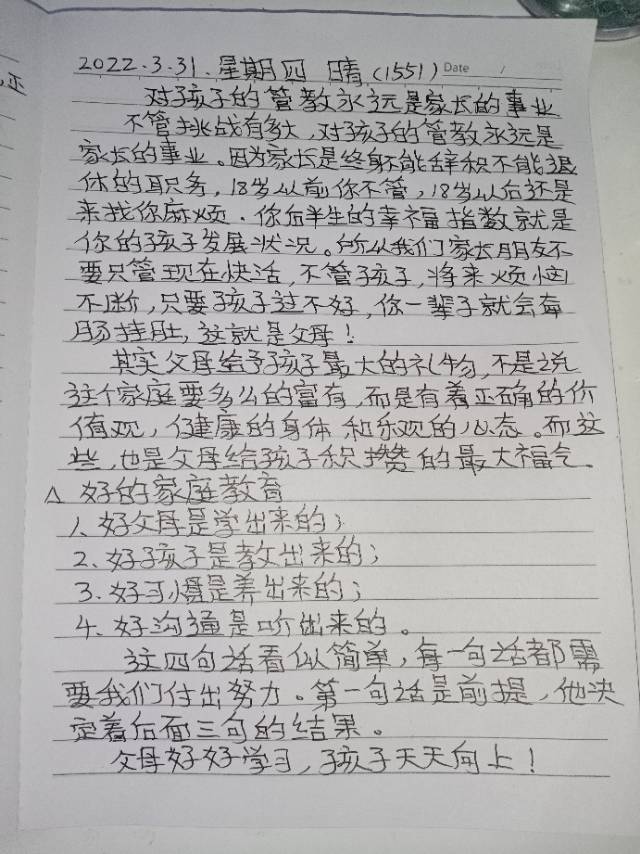 2022.3.31.星期四 晴(1551) Date /
对孩子的管教永远是家长的事业
不管挑战有多大,对孩子的管教永远是
家长的事业。因为家长是终身不能辞积不能退
休的职务,18岁以前你不管,18岁以后还是
来找你麻烦.你后半生的幸福指数就是
你的孩子发展状况。所以我们家长朋友不
要只管现在快活,不管孩子,将来烦恼
不断,只要孩子过不好,你一辈子就会牵
肠挂肚,这就是父母!
其实父母给予孩子最大的礼物,不是说
这个家庭要多么的富有,而是有着正确的价
值观,健康的身体和乐观的心态。而这
些,也是父母给孩子积攒的最大福气。
△ 好的家庭教育
1、好父母是学出来的;
2、好孩子是教出来的;
3、好习惯是养出来的;
4、好沟通是听出来的。
这四句话看似简单,每一句话都需
要我们付出努力。第一句话是前提,他决
定着后面三句的结果。
父母好好学习,孩子天天向上!
正